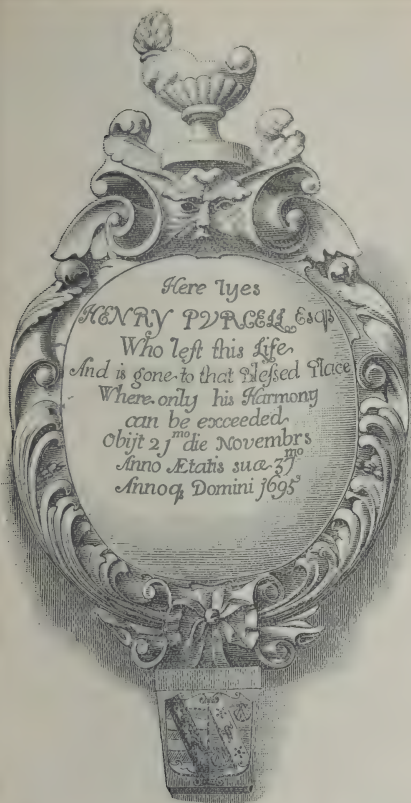 Here lyes
HENRY PVRCELL Esqr
Who left this Life
And is gone to that Blessed Place
Where only his Harmony
can be exceeded
Obijt 2jmo die Novembrs
Anno Ætatis suæ 37mo
Annoq Domini j695